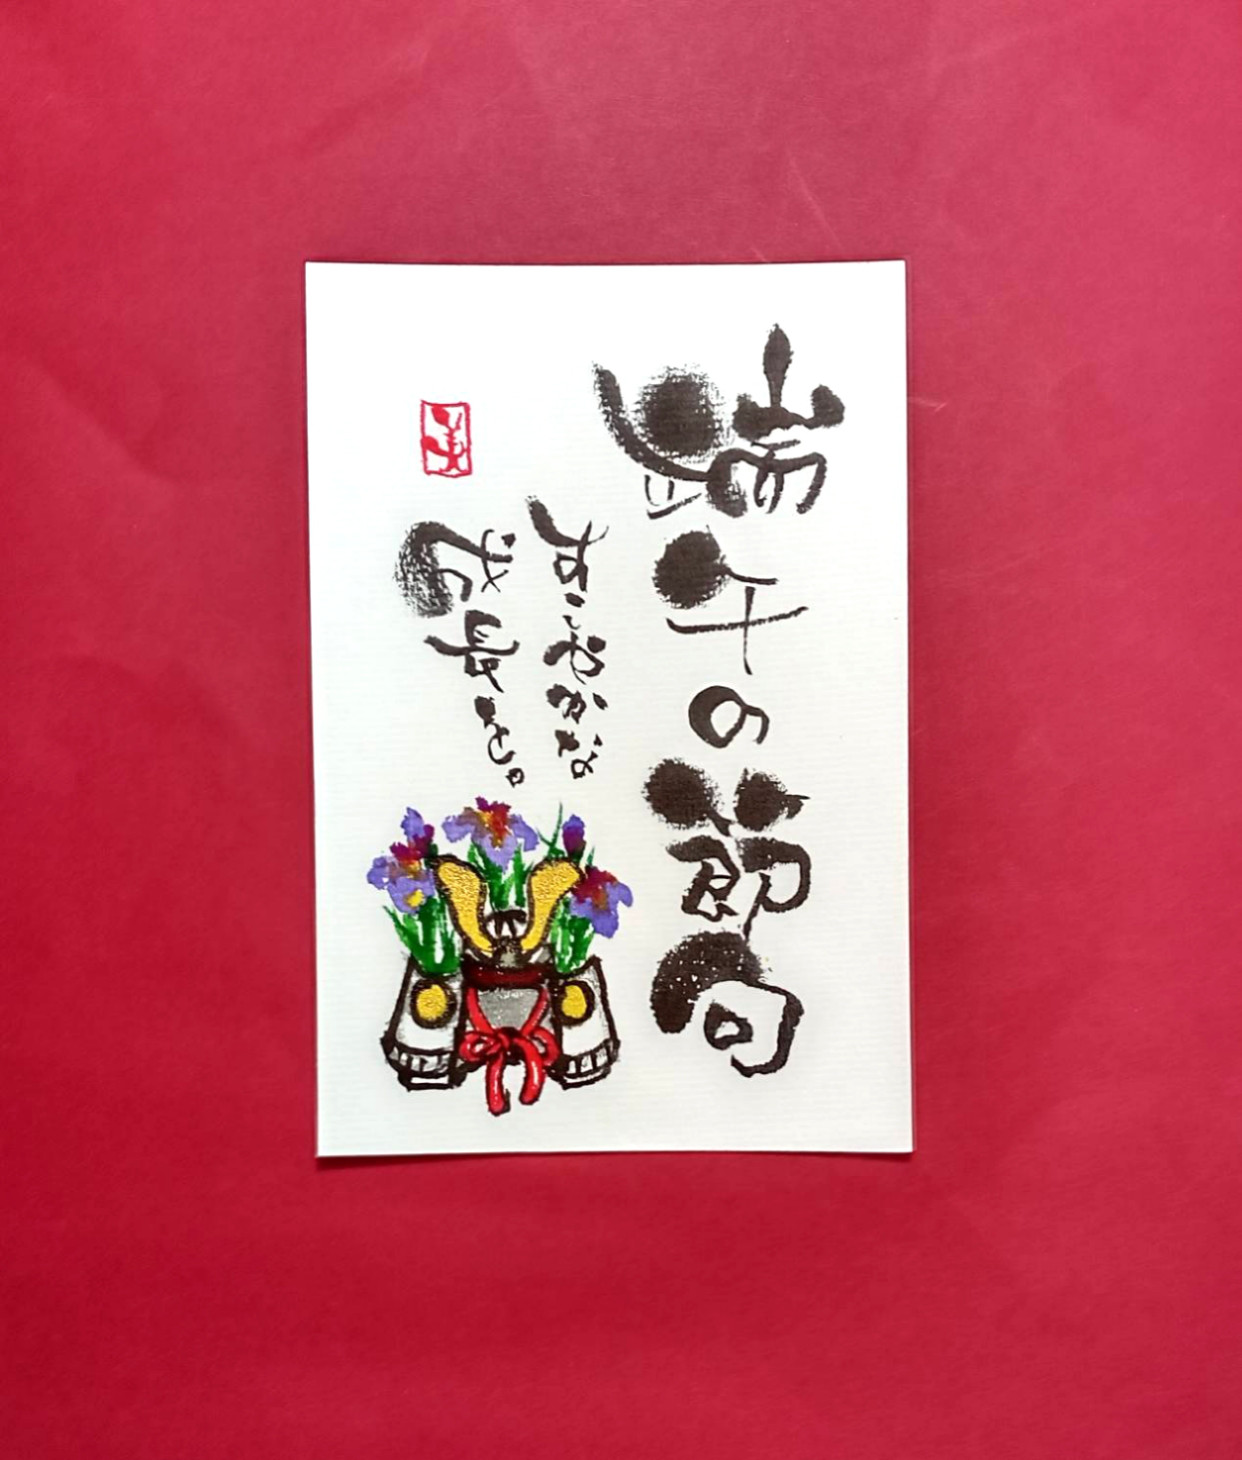 端午の節句
すこやかな
成長を。